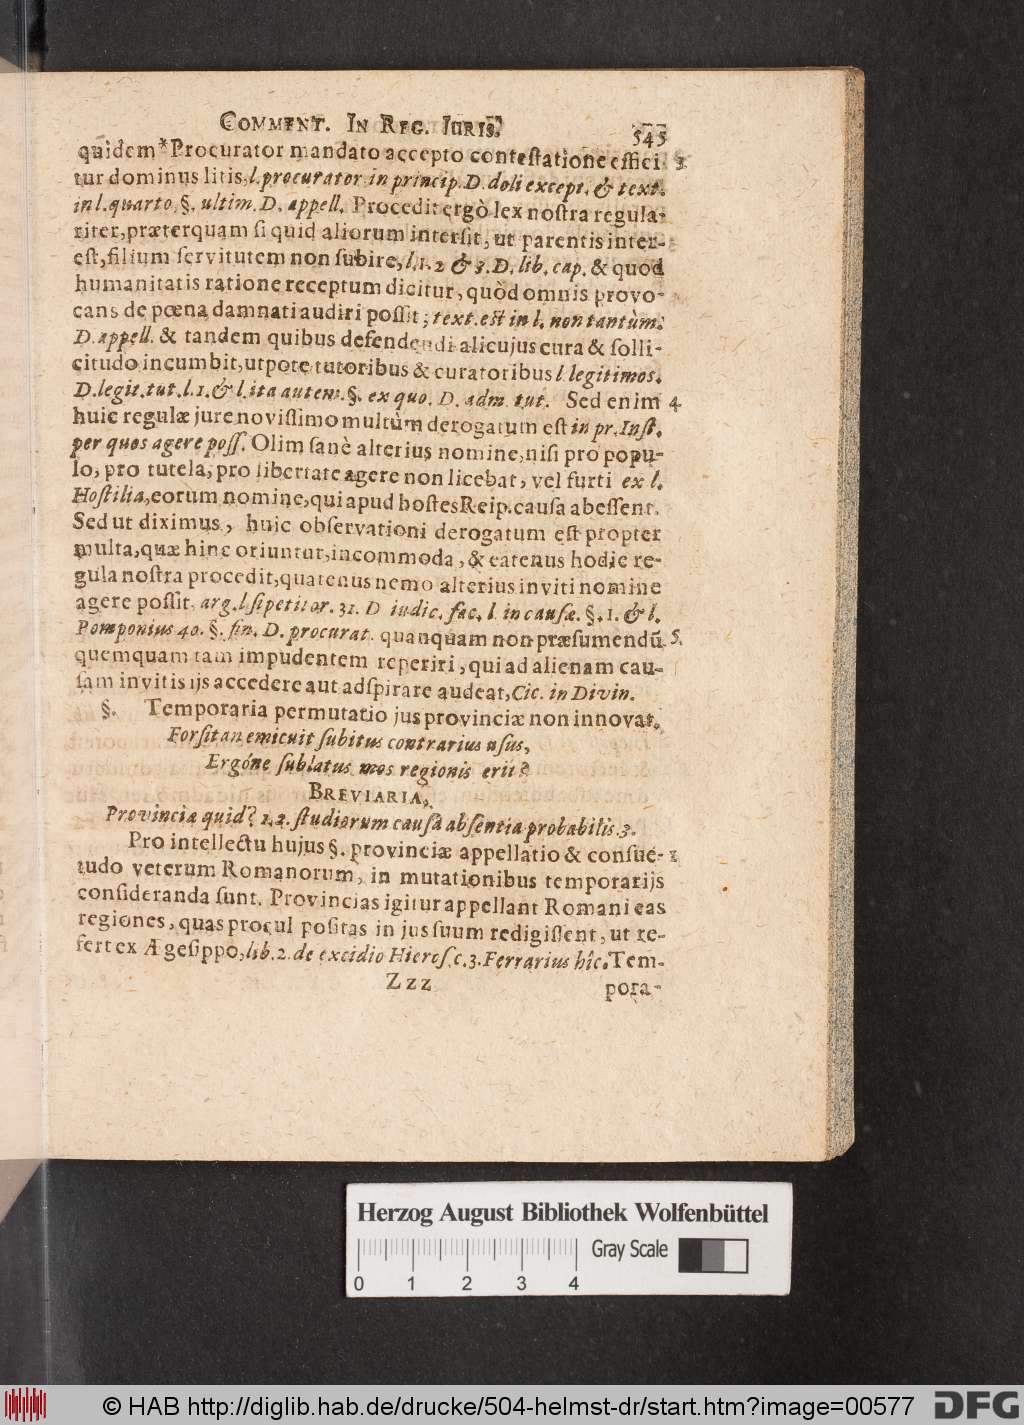 COMMENT. IN REG. IURIS. 545
quidem * Procurator mandato accepto contestatione effici- 3.
tur dominus litis, l. procurator in princip. D. doli except. & text.
in l. quarto, §. ultim. D. appell. Procedit ergò lex nostra regula-
riter, præterquam si quid aliorum intersit, ut parentis inter-
est, filium servitutem non subire, l. 1. 2 & 3. D. lib. cap. & quod
humanitatis ratione receptum dicitur, quòd omnis provo-
cans de pœna damnati audiri possit; text. est in l. non tantùm.
D. appell. & tandem quibus defendendi alicujus cura & solli-
citudo incumbit, utpote tutoribus & curatoribus l legitimos.
D. legit. tut. l. 1. & l. ita autem. §. ex quo. D. adm. tut. Sed enim 4.
huic regulæ jure novissimo multùm derogatum est in pr. Inst.
per quos agere poss. Olim sanè alterius nomine, nisi pro popu-
lo, pro tutela, pro libertate agere non licebat, vel furti ex l.
Hostilia, eorum nomine, qui apud hostes Reip. causa abessent.
Sed ut diximus, huic observationi derogatum est propter
multa, quæ hinc oriuntur, incommoda, & eatenus hodie re-
gula nostra procedit, quatenus nemo alterius inviti nomine
agere possit, arg. l si petitor. 31. D iudic. fac. l. in causæ. §. 1. & l.
Pomponius 40. §. fin. D. procurat. quanquam non præsumendũ 5.
quemquam tam impudentem reperiri, qui ad alienam cau-
sam invitis ijs accedere aut adspirare audeat, Cic. in Divin.
§. Temporaria permutatio jus provinciæ non innovat.
Forsitan emicuit subitus contrarius usus,
Ergóne sublatus mos regionis erit?
BREVIARIA.
Provincia quid? 1.2. studiorum causâ absentia probabilis 3.
Pro intellectu hujus §. provinciæ appellatio & consue- 1
tudo veterum Romanorum, in mutationibus temporarijs
consideranda sunt. Provincias igitur appellant Romani eas
regiones, quas procul positas in jus suum redigissent, ut re-
fert ex Ægesippo, lib. 2. de excidio Hieros. c. 3. Ferrarius hîc. Tem-
Zzz pora-
Herzog August Bibliothek Wolfenbüttel
Gray Scale
0 1 2 3 4
© HAB http://diglib.hab.de/drucke/504-helmst-dr/start.htm?image=00577
DFG